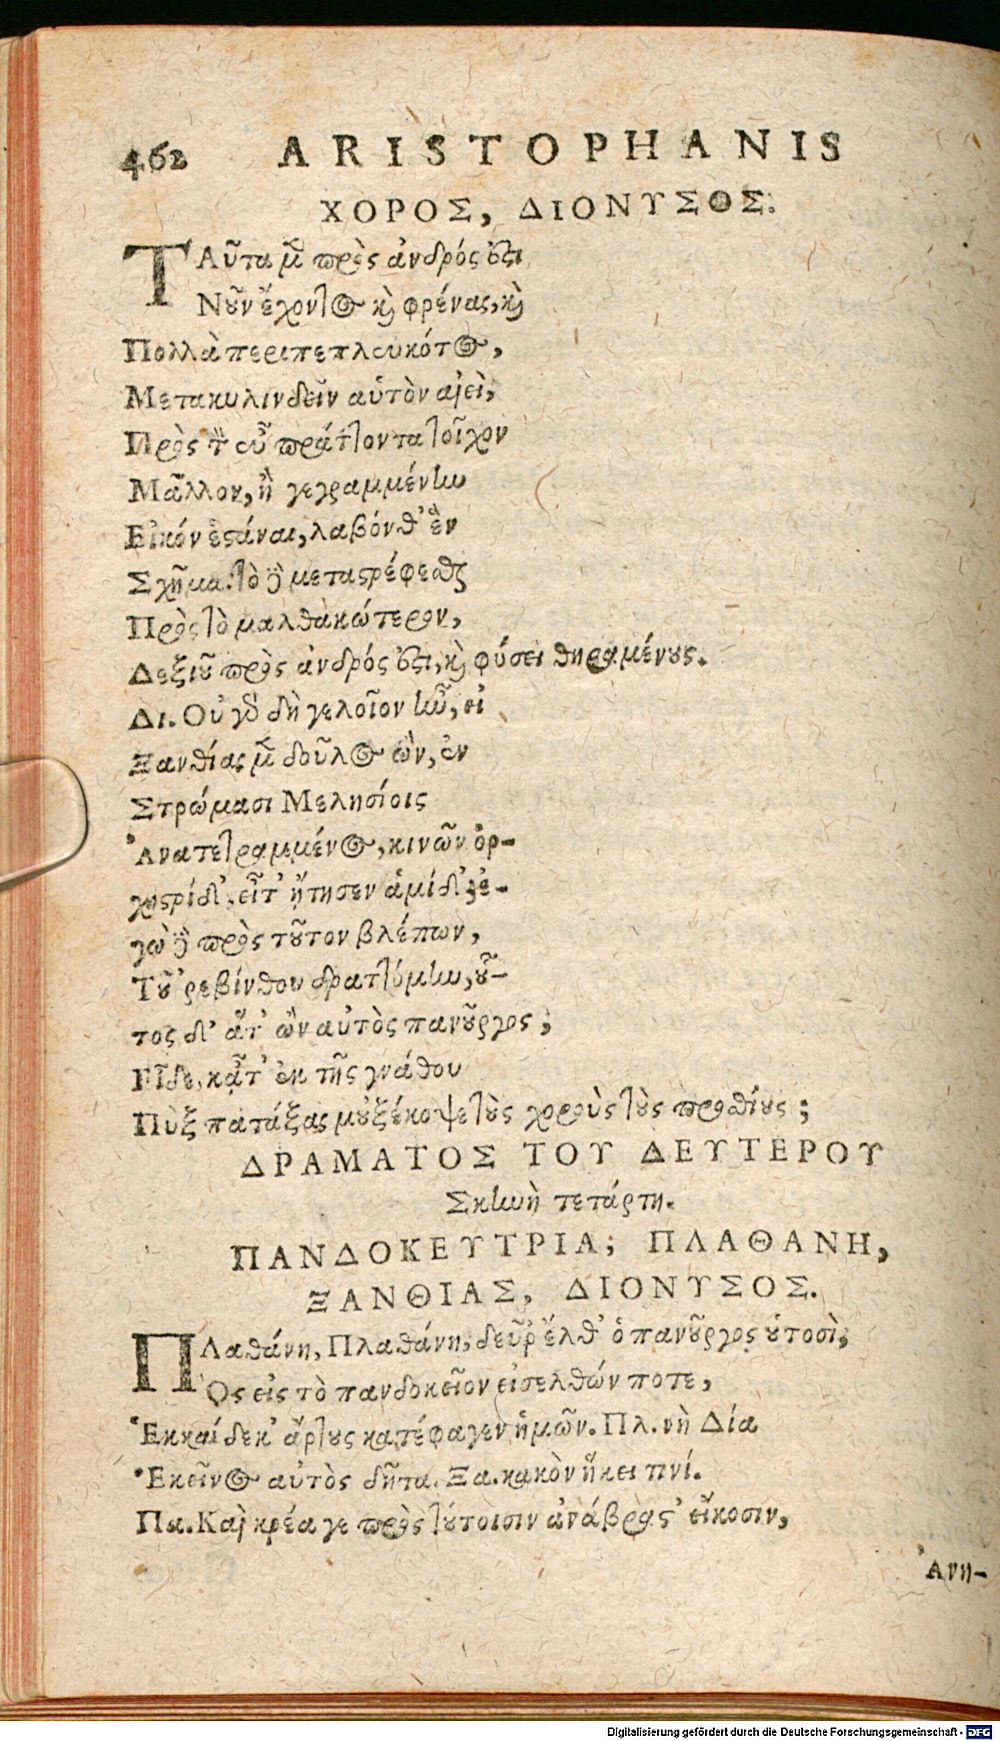 462 ARISTOPHANIS
ΧΟΡΟΣ, ΔΙΟΝΥΣΟΣ.
ΤΑῦτα μὲν πρὸς ἀνδρός ἐστι
Νοῦν ἔχοντος καὶ φρένας, καὶ
Πολλὰ περιπεπλευκότος,
Μετακυλινδεῖν αὑτὸν αἰεὶ,
Πρὸς τὸν εὖ πράττοντα τοῖχον
Μᾶλλον, ἢ γεγραμμένην
Εἰκόν ἑστάναι, λαβόνθ' ἓν
Σχῆμα. τὸ δὲ μεταστρέφεσθαι
Πρὸς τὸ μαλθακώτερον,
Δεξιοῦ πρὸς ἀνδρός ἐστι, καὶ φύσει θηραμένους.
Δι. Οὐ γὰρ δὴ γελοῖον ἦν, εἰ
Ξανθίας μὲν δοῦλος ὢν, ἐν
Στρώμασι Μελησίοις
Ἀνατετραμμένος, κινῶν ὀρ-
χηστρίδ', εἶτ' ᾔτησεν ἀμίδ', ἐ-
γὼ δὲ πρὸς τοῦτον βλέπων,
Τοῦ ῥεβίνθου δραττόμην, οὗ-
τος δ' ἅτ' ὢν αὐτὸς πανοῦργος,
Εἶδε, κᾆτ' ἐκ τῆς γνάθου
Πὺξ πατάξας μοὐξέκοψε τοὺς χοροὺς τοὺς προσθίους;
ΔΡΑΜΑΤΟΣ ΤΟΥ ΔΕΥΤΕΡΟΥ
Σκηνὴ τετάρτη.
ΠΑΝΔΟΚΕΥΤΡΙΑ, ΠΛΑΘΑΝΗ,
ΞΑΝΘΙΑΣ, ΔΙΟΝΥΣΟΣ.
ΠΛαθάνη, Πλαθάνη, δεῦρ' ἔλθ' ὁ πανοῦργος οὑτοσὶ,
Ὃς εἰς τὸ πανδοκεῖον εἰσελθών ποτε,
Ἑκκαίδεκ' ἄρτους κατέφαγεν ἡμῶν. Πλ. νὴ Δία
Ἐκεῖνος αὐτὸς δῆτα. Ξα. κακὸν ἥκει τινί.
Πα. Καὶ κρέα γε πρὸς τούτοισιν ἀνάβραστ' εἴκοσιν,
Ἀνη-
Digitalisierung gefördert durch die Deutsche Forschungsgemeinschaft - DFG